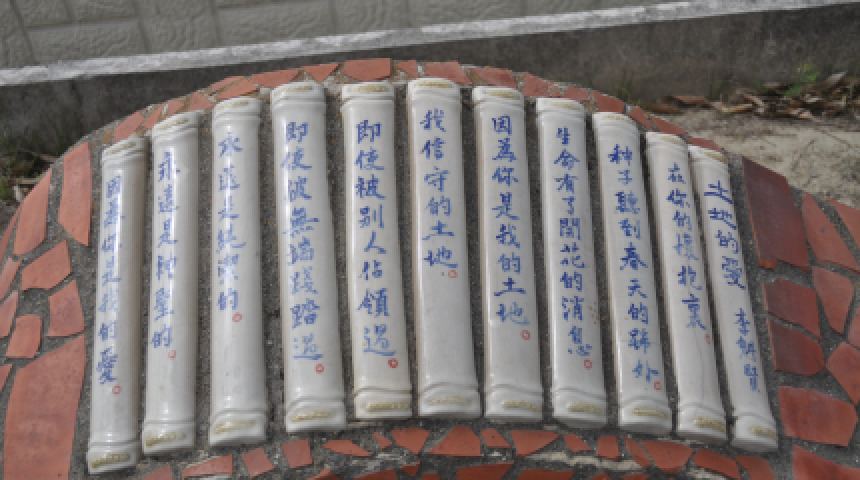 土地的愛 李魁賢
在你的懷抱裏
種子聽到春天的號外
生命有了開花的消息
因為你是我的土地
我信守的土地
即使被別人佔領過
即使被無端踐踏過
永遠是純潔的
永遠是神聖的
因為你是我的愛